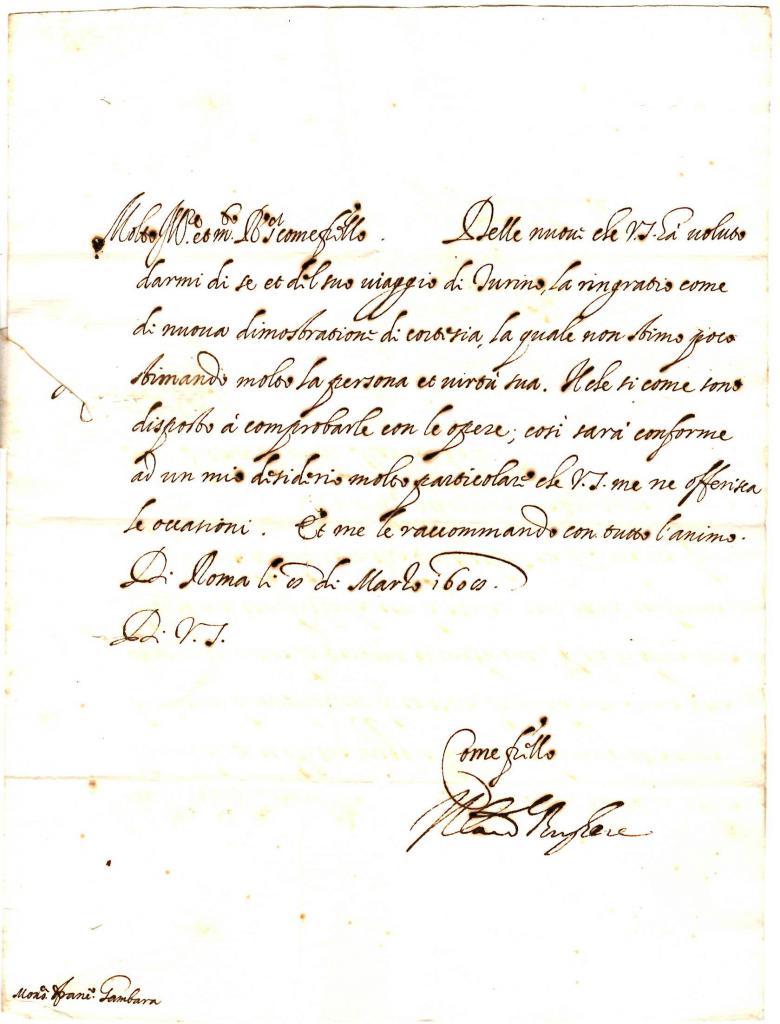 Molto Ill.re et m.to R.do come fr̃ello. Delle nuove che V.S. hà voluto
darmi di se et del suo viaggio di Turino, la ringratio come
di nuova dimostratione di cortesia, la quale non stimo poco
stimando molto la persona et virtù sua. Il che si come sono
disposto à comprobarle con le opere; così sarà conforme
ad un mio desiderio molto particolare che V.S. me ne offerisca
le occasioni. Et me le raccommando con tutto l'animo.
Di Roma li di Marzo
Di V.S.
Come fr̃ello
Il Card. Borghese
Mons.r Franc.o Gambara